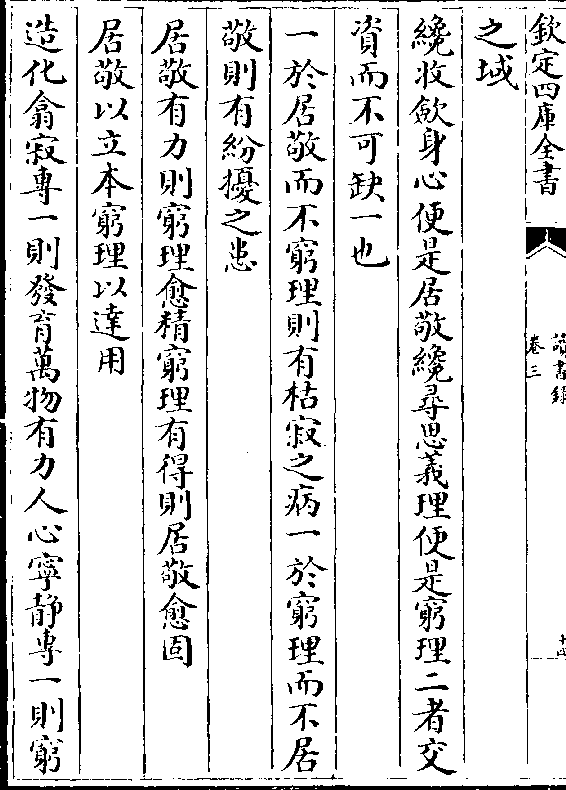 欽定四庫全書
讀書錄
卷三
十四
之域
纔收斂身心便是居敬纔尋思義理便是窮理二者交
資而不可缺一也
一於居敬而不窮理則有枯寂之病一於窮理而不居
敬則有紛擾之患
居敬有力則窮理愈精窮理有得則居敬愈固
居敬以立本窮理以達用
造化翕寂專一則發育萬物有力人心寧静專一則窮